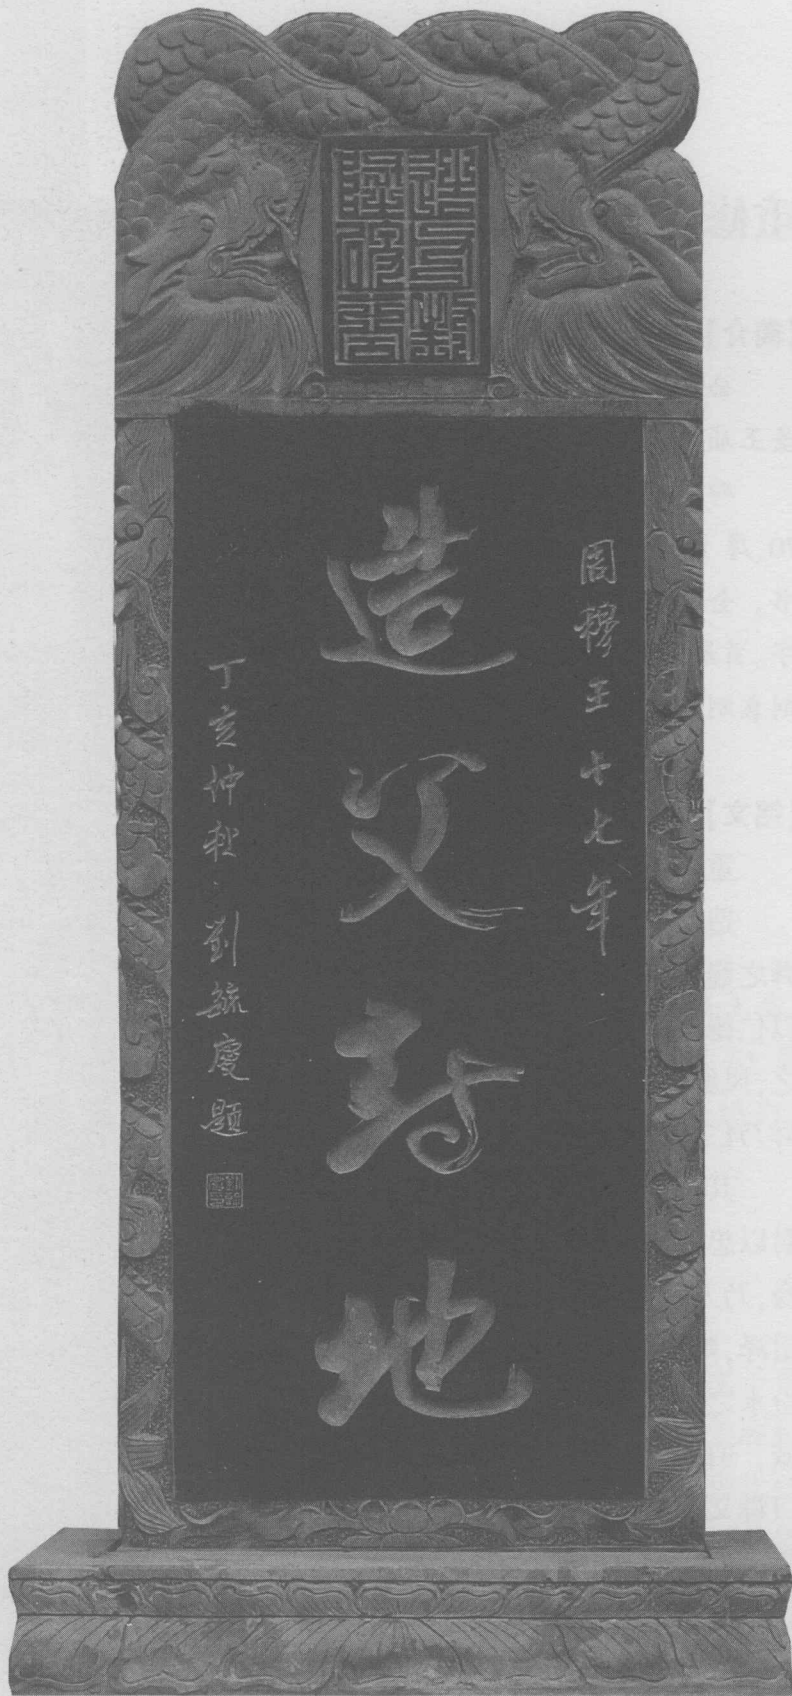 周穆王十七年
造父封地
丁亥仲秋劉毓慶題